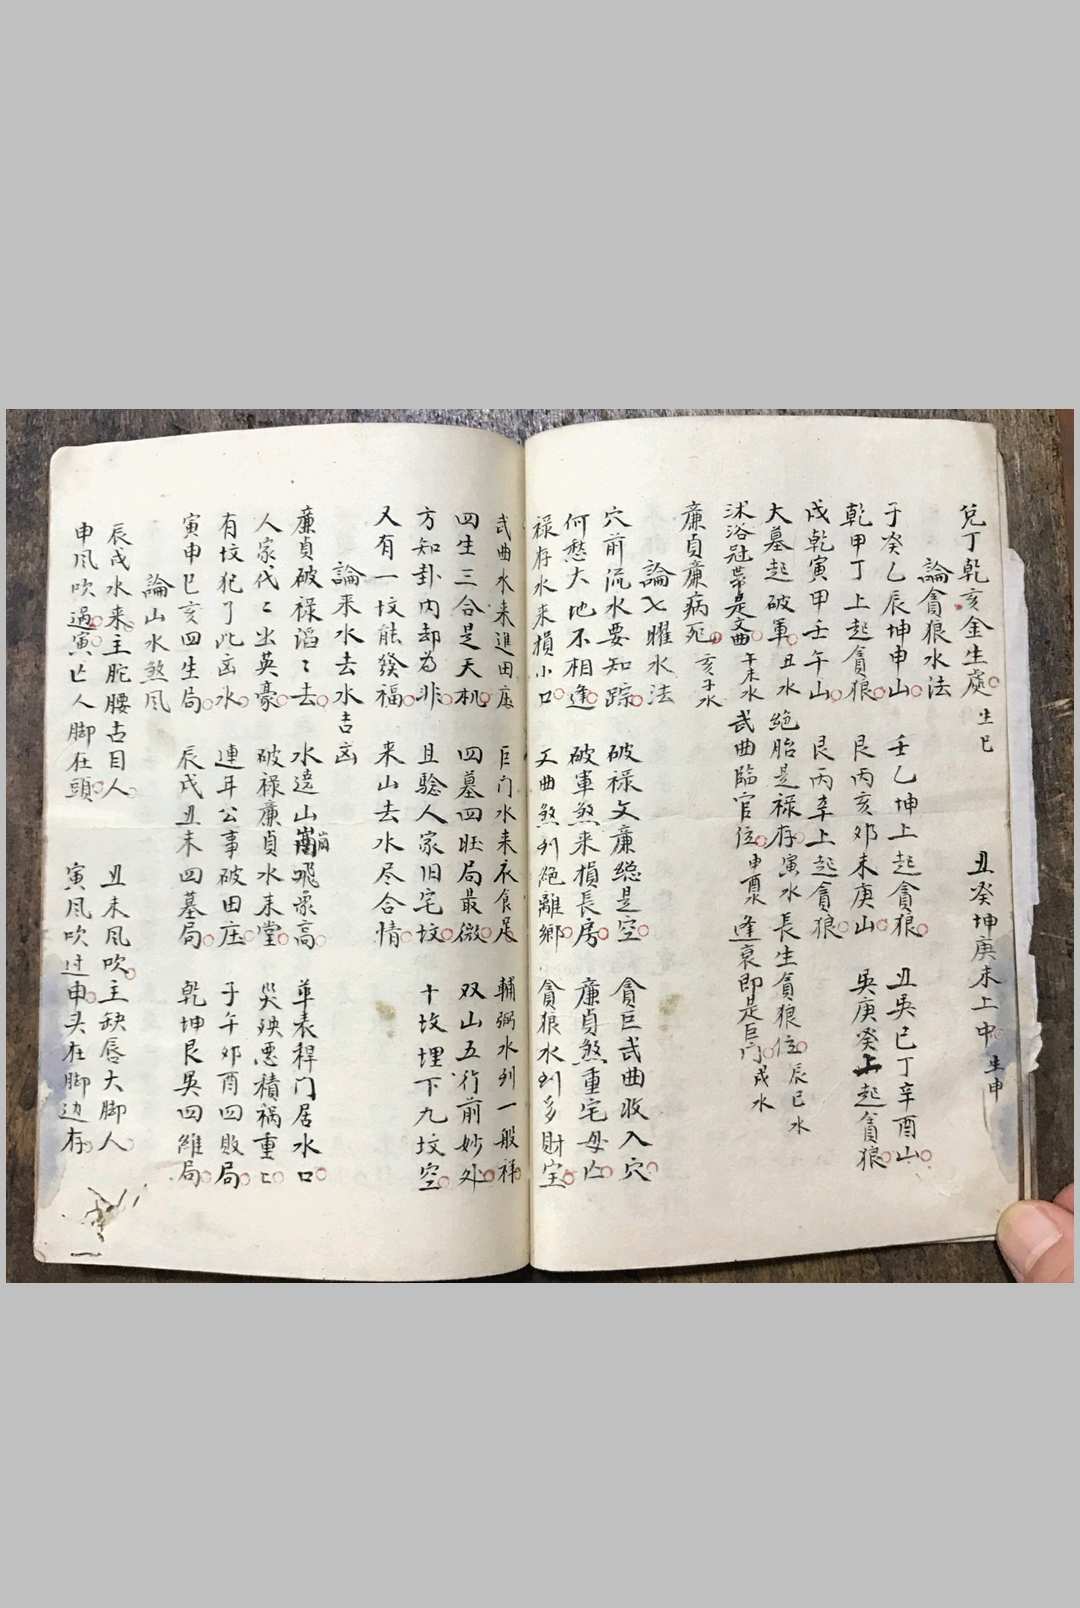 兌丁乾亥金生處 生巳 丑癸坤庚未上中 生申
論貪狼水法
子癸乙辰坤申山 壬乙坤上起貪狼 丑巽巳丁辛酉山
乾甲丁上起貪狼 艮丙亥卯未庚山 巽庚癸上起貪狼
戌乾寅甲壬午山 艮丙辛上起貪狼
大墓起破軍 丑水 絕胎是禄存 寅水 長生貪狼位 辰巳水
沐浴冠帶是文曲 午未水 武曲臨官位 申酉水 逢衰即是巨门 戌水
廉貞廉病死 亥子水
論七曜水法
穴前流水要知踪 破禄文廉總是空 貪巨武曲收入穴
何愁大地不相逢 破軍煞来損長房 廉貞煞重宅母亡
禄存水来損小口 文曲煞到絕離鄉 貪狼水到多財宝
武曲水来進田庄 巨门水来衣食足 輔弼水到一般祥
四生三合是天机 四墓四旺局最微 双山五行前妙处
方知卦内却为非 且騐人家旧宅坟 十坟埋下九坟空
又有一坟能發福 来山去水尽合情
論来水去水吉凶
廉貞破禄滔〻去 水遶山崗飛眾高 華表捍门居水口
人家代〻出英豪 破禄廉貞水来堂 災殃悪積禍重〻
有坟犯了此凶水 連年公事破田庄 子午卯酉四败局
寅申巳亥四生局 辰戌丑未四墓局 乾坤艮巽四維局
論山水煞風
辰戌水来主駝腰古目人 丑未風吹主缺唇大脚人
申风吹過寅亡人脚在頭 寅风吹过申头在脚边存